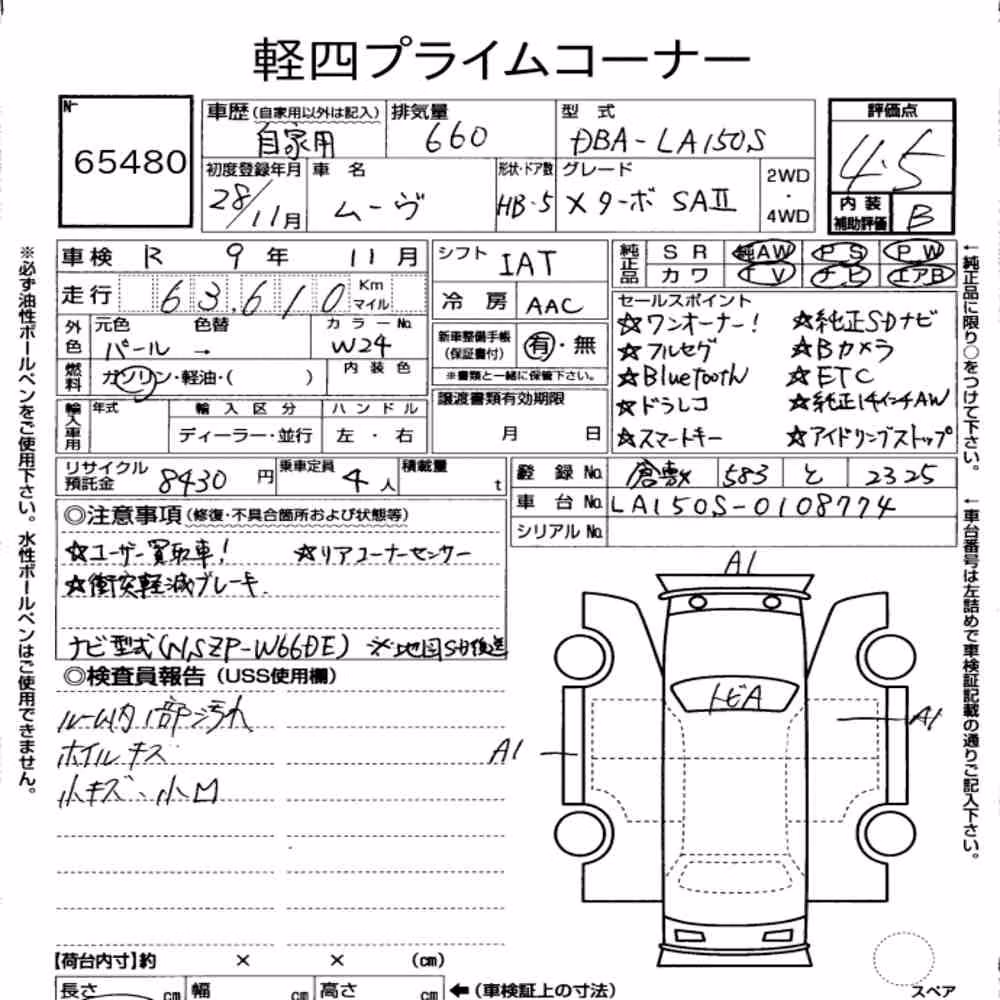 軽四プライムコーナー
No.
65480
車歴(自家用以外は記入) 排気量 型 式 評価点
自家用 660 DBA-LA150S 4.5
初度登録年月 車 名 形状・ドア数 グレード 2WD・4WD 内装補助評価
28/11月 ムーヴ HB・5 Xターボ SAⅡ B
車検 R 9年 11月 シフト IAT 純正品 SR 純AW PS PW
カワ TV ナビ エアB
走行 63,610 Km マイル 冷房 AAC セールスポイント
外色 元色 色替 カラーNo.
パール → W24
新車整備手帳(保証書付) 有・無
※書類と一緒に保管下さい。
☆ワンオーナー! ☆純正SDナビ
☆フルセグ ☆Bカメラ
☆Bluetooth ☆ETC
☆ドラレコ ☆純正14インチAW
☆スマートキー ☆アイドリングストップ
燃料 ガソリン・軽油・( ) 内装色
譲渡書類有効期限
月 日
輸入車用 年式 輸入区分 ハンドル
ディーラー・並行 左・右
リサイクル預託金 8430円 乗車定員 4人 積載量 t
登録No. 倉敷 583 と 2325
車台No. LA150S-0108774
シリアルNo.
◎注意事項(修復・不具合箇所および状態等)
☆ユーザー買取車! ☆リアコーナーセンサー
☆衝突軽減ブレーキ
ナビ型式(NSZP-W66DE) ※地図SD後送
◎検査員報告(USS使用欄)
ルーム内1部汚れ
ホイルキズ
小キズ・小凹
A1
トビA
A1
A1
【荷台内寸】約 × × (cm)
長さ cm 幅 cm 高さ cm ←(車検証上の寸法)
スペア
※必ず油性ボールペンをご使用下さい。水性ボールペンはご使用できません。
←純正品に限り○をつけて下さい。
←車台番号は左詰めで車検証記載の通りご記入下さい。